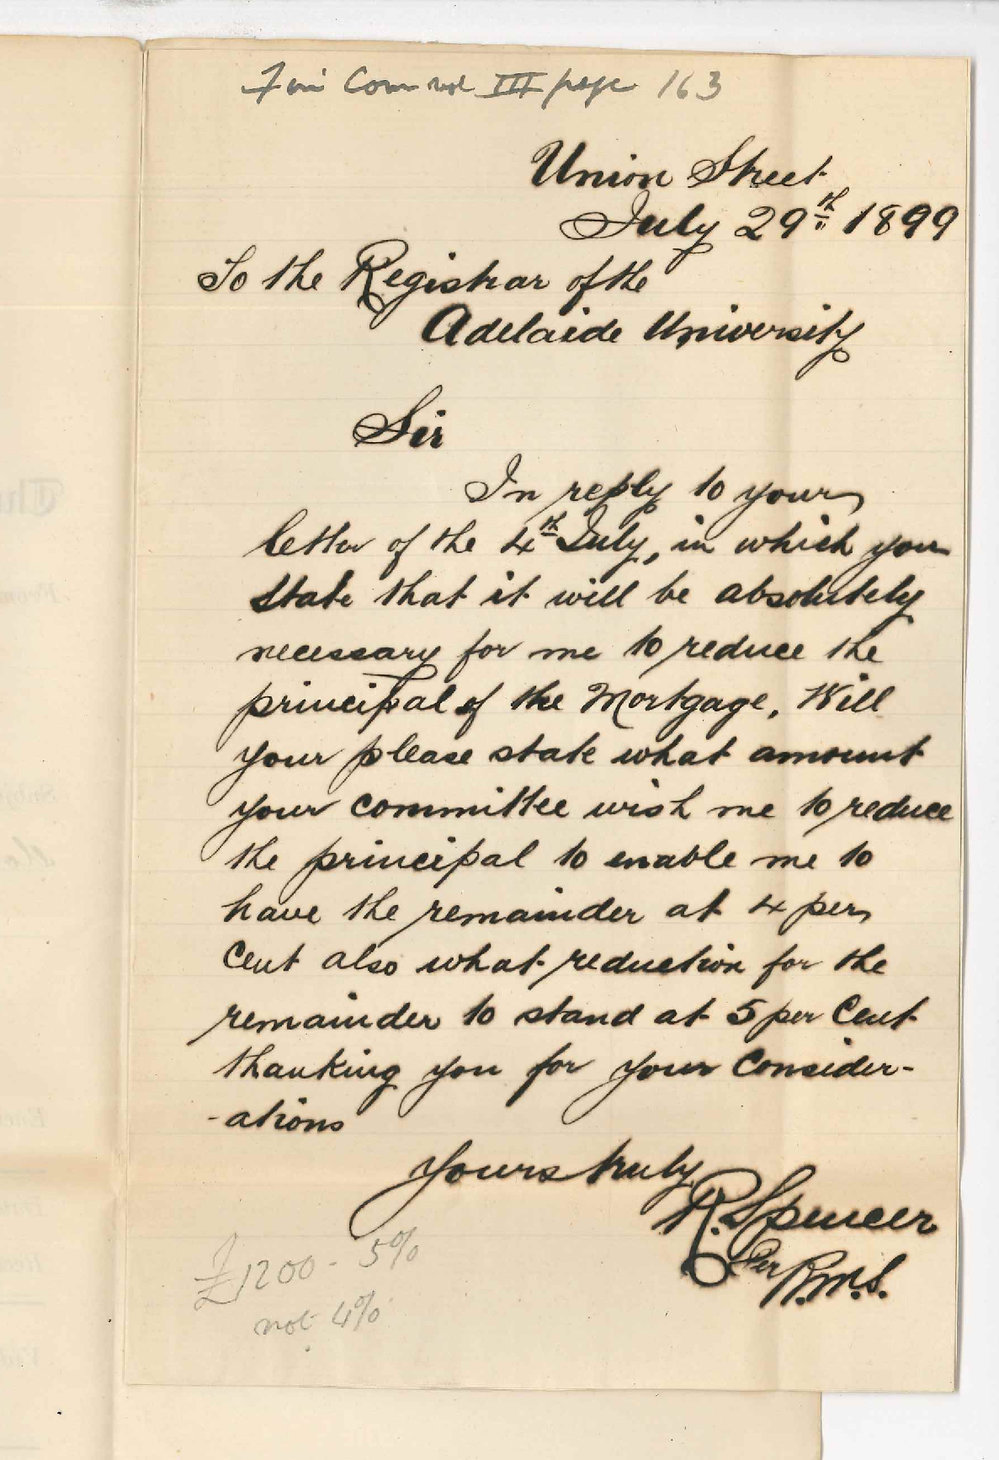 Fin Com vol III page 163
Union Street
July 29th 1899
To the Registrar of the
Adelaide University
Sir
In reply to your
letter of the 4th July, in which you
state that it will be absolutely
necessary for me to reduce the
principal of the Mortgage, Will
your please state what amount
your committee wish me to reduce
the principal to enable me to
have the remainder at 4 per
Cent also what reduction for the
remainder to stand at 5 per Cent
thanking you for your Consider-
-ations
Yours truly
R. Spencer
Per R.M.S.
£1200 - 5%
not 4%